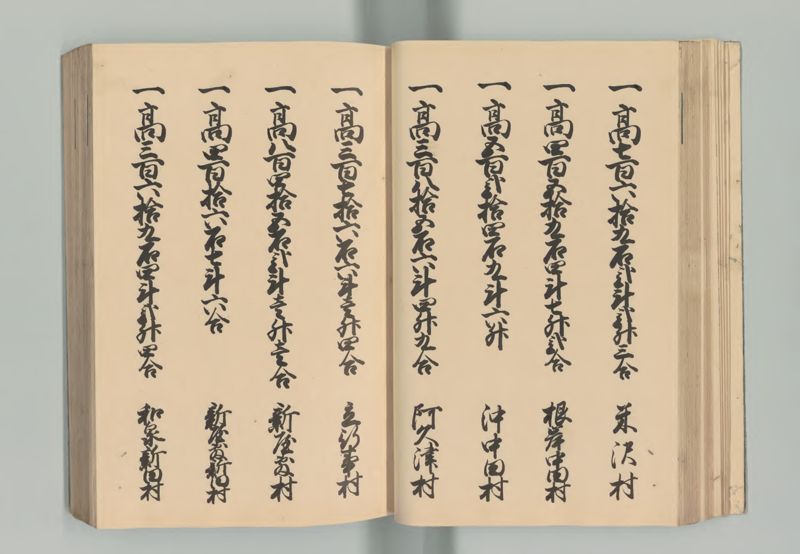 一高七百六拾九石弐斗弐升三合 米沢村
一高四百五拾九石四斗七升弐合 根岸中田村
一高五百弐拾四石九斗六升 沖中田村
一高三百八拾五石六斗四升九合 阿久津村
一高三百七拾六石六斗壱升四合
一高八百四拾五石弐斗壱升壱合 新屋敷村
一高四百拾六石七斗六合 新屋敷新田村
一高三百六拾九石四斗弐升四合 和泉新田村